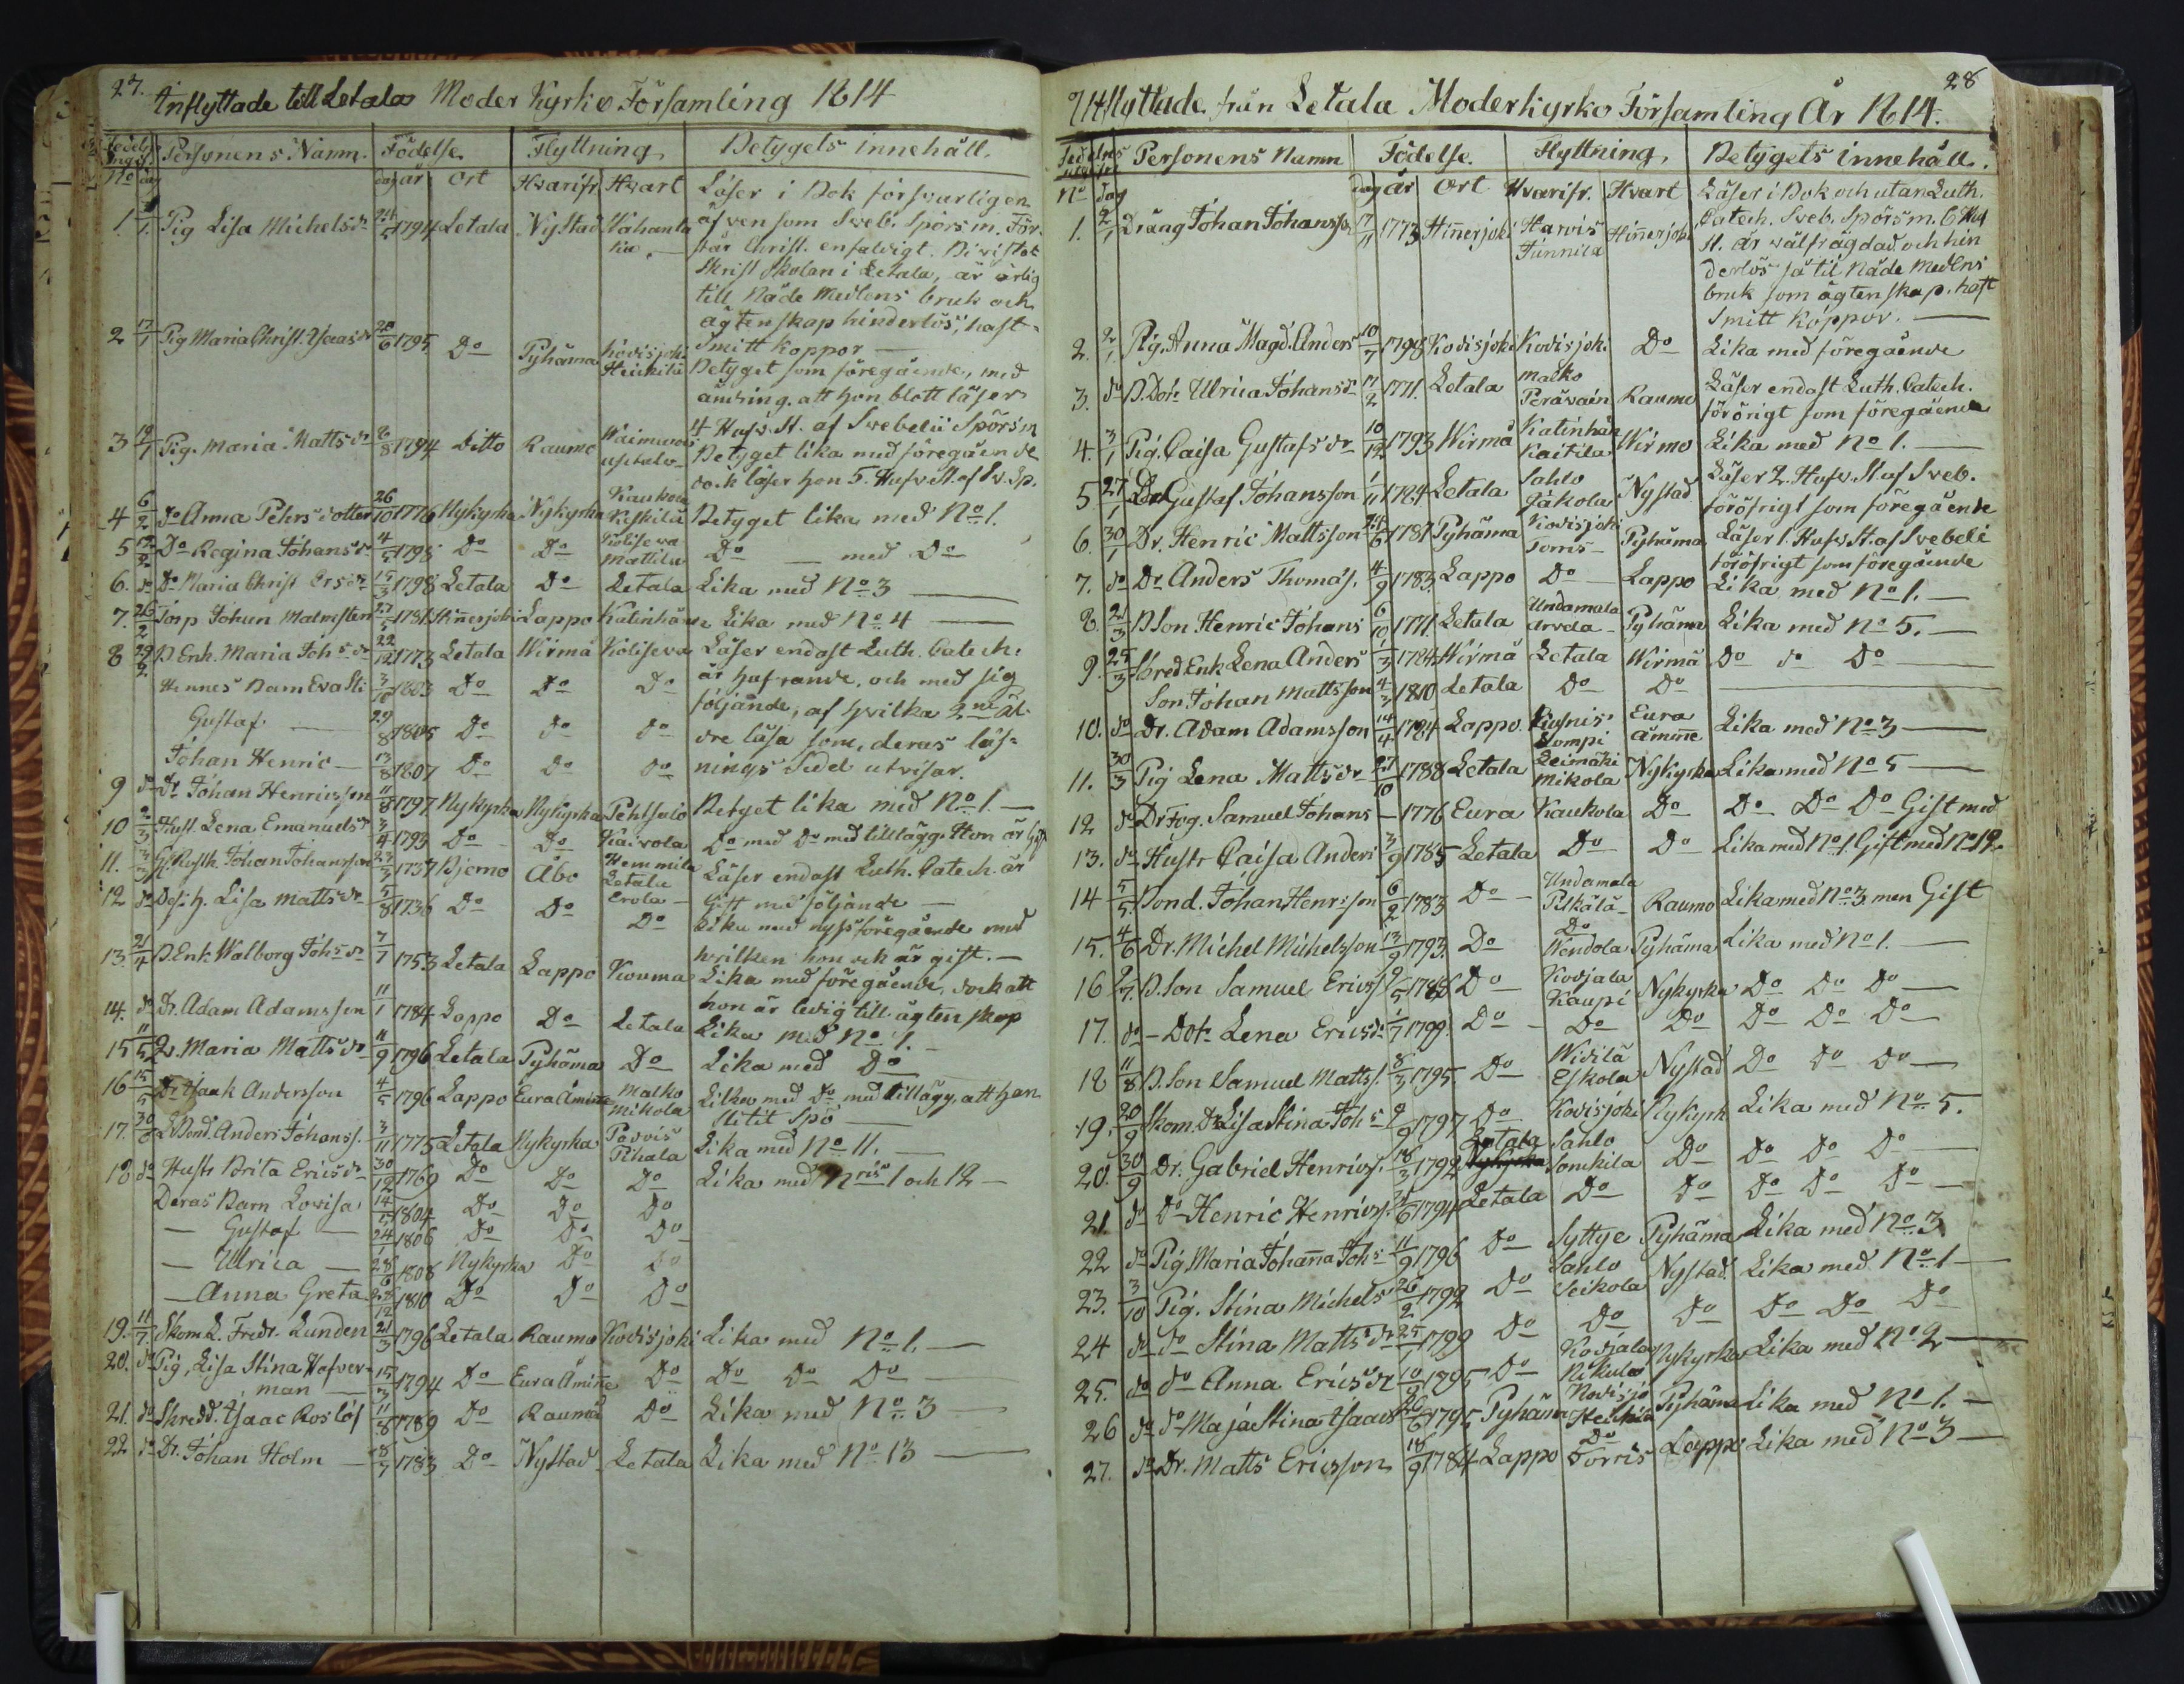 27.
Inflyttade till Letala Moder Kyrko Församling 1814
Personens Namn. Födelse Flyttning Betygets innehåll.
No dag dag år Ort Hvarifr. Hwart Läser i Bok försvarligen
1. Pig Lisa Michelsdr 24/5 1794 Letala Nystad Vahanta äfven som Sveb. Spörsm. För-
ka står Christ. enfaldigt. Bivistat
Skrift skolan i Letala, är ärlig
till Nåde Medlens bruk och
ägtenskap hinderlös, haft
2 17/1 Pig Maria Christ. Ysaacsdr 20/6 1795 Do Pyhäma Kodisjoki Smitt koppor —
Heickilä Betyget som föregående, med
ändring, att hon blott läser
4 Hufv. St. af Svebelii Spörsm
3 19/1 Pig. Maria Mattsdr 8/8 1794 Ditto Raumo Betyget lika med föregående
dock läser hon 5 Hufv St. af Sv. Sp.
Kaukola
4 6/2 Do Anna Pehrs dotter 26/10 1776 Nykyrka Nykyrka Keskilä Betyget lika med No 1.
5 12/2 Do Regina Johansdr 4/5 1795 Do Do Koliseva Mattila Do — med Do
6. do Do Maria Christ Ersdr 15/3 1798 Letala Do Letala Lika med No 3 —
7. 26/2 Torp Johan Malmsten 1781 Hinnerjoki Lappo Katinhän Lika med No 4 —
8 29/2 B Enk. Maria Johsdr 22/12 1773 Letala Wirmå Koliseva Läser endast Luth. Catech.
Hennes Barn Eva Sti 3/10 1803 Do Do Do är hafvande, och med sig
följande, af hvilka 2ne äl-
Gustaf — 29/8 1805 Do do do dre läsa som, deras läs-
Johan Henric — 13/8 1807 Do do do nings Sedel utvisar.
9 do Dr Johan Henricsson 11/8 1797 Nykyrka Nykyrka Pehtsalo Betyget lika med No 1. —
10 2/3 Hust. Lena Emanuelsdr 3/4 1793 Do Do Kaivola Do med Do med tillägg. Hon är Gift
11. 3/3 Johan Johansson 1737 Bjerno Åbo Hemmilä Läser endast Luth. Catech. är
Letala
12 do Des h. Lisa Mattsdr 5/8 1736 Do Do Erola Gift med följande —
Do Lika med nyssföregående med
13. 21/4 B Enk Walborg Johsdr 7/7 1753 Letala Lappo Kouma hvilken hon ock är gift. —
Lika med föregående, dock att
14. do Dr. Adam Adamsson 11/1 1784 Lappo Do Letala hon är ledig till ägtenskap
Lika med No 1. —
15 11/5 Maria Mattsdr 11/9 1796 Letala Pyhäma Do Lika med Do
16 15/5 Dr Ysaak Andersson 4/5 1796 Lappo Eura Åminne Malko Mikola Lika med Do med tillägg, att han
slitit Spö —
17. 30/6 Bond. Anders Johanss. 3/11 1775 Letala Nykyrka Povois Pihala Lika med No 11. —
18 do Hustr Brita Ericsdr 30/12 1769 Do Do Do Lika med Nris 1 och 12 —
Deras Barn Lovisa 14/5 1804 Do Do Do
— Gustaf — 24/1 1806 Do Do Do
— Ulrica — 28/6 1808 Nykyrka Do Do
— Anna Greta 28/12 1810 Do Do Do
19. 11/7 Skom L. Fredr. Lunden 21/3 1796 Letala Raumo Kodisjoki Lika med No 1. —
20. do Pig, Lisa Stina Hafver-
man 15/3 1794 Do Eura Åminne Do Do Do Do —
21. do Skredd. Ysaac Roslöf 11/8 1789 Do Raumo Do Lika med No 3 —
22. do Dr. Johan Holm — 8/7 1783 Do Nystad Letala Lika med No 13 —
28
Utflyttade från Letala Moderkyrko Församling År 1814.
Personens Namn Födelse. Flyttning. Betygets innehåll.
No dag dag år Ort Hvarifr. Hvart Läser i Bok och utan Luth.
1. 2/1 Dräng Johan Johansson 17/11 1773 Hinnerjoki Harvis Hinnerjoki Catech. Sveb. Spörsm. 6 Huf
Tunnila St. är välfrägdad och hin
derlös så til Nåde Medlens
bruk som ägtenskap. haft
Smitt koppor. —
2. 2/1 Pig. Anna Magd. Anders 10/7 1798 Kodisjoki Kodisjoki Do Lika med föregående
3. do B. Dotr Ulrica Johansdr 17/2 1771. Letala Malko Perävain Raumo Läser endast Luth. Catech.
förörigt som föregående
4. 3/1 Pig. Caisa Gustafsdr 10/12 1793 Wirmå Katinhän Kaitila Wirmo Lika med No 1. —
5 27/1 Gustaf Johansson 1/11 1784 Letala Sahlo Jäkola Nystad Läser 2. Hufv. St. af Sveb.
föröfrigt som föregående
6. 30/1 Dr. Henric Mattsson 24/6 1787 Pyhäma Kodisjoki Toms Pyhäma Läser 1. Hufv St. af Svebeli
föröfrigt som föregående
7. do Dr. Anders Thomas. 4/9 1783. Lappo Do — Lappo Lika med No 1. —
8 21/3 B Son Henric Johans 6/10 1771. Letala Undamala Arvela Pyhäma Lika med No 5. —
9. 25/3 Skred Enk Lena Anders 1/3 1784 Wirmå Letala Wirmå Do do Do —
Son Johan Mattsson 4/3 1810 Letala Do Do
10. do Dr. Adam Adamsson 14/4 1784 Lappo Kusnis Lompi Eura åminne Lika med No 3 —
11. 30/3 Pig Lena Mattsdr 27/10 1788 Letala Leimäki Mikola Nykyrka Lika med No 5 —
12 do Dr Fog. Samuel Johans — 1776 Eura Kaukola Do Do Do Do Gift med
13. do Hustr Caisa Anders 3/9 1785 Letala Do Do Lika med No 1. Gift med No 12.
14 5/5 Bond. Johan Henrsson 6/2 1783 Do — Undamala Pelkälä Raumo Lika med No 3, men Gift
15. 4/6 Dr. Michel Michelsson 13/9 1793. Do Do Wendola Pyhäma Lika med No 1. —
16 2/7 B. Son Samuel Ericss 9/5 1786 Do Kodjala Kaupi Nykyrka Do Do Do —
17. do — Dotr Lena Ericsdr 1/7 1799. Do — Do Do Do Do Do
18 11/8 B. Son Samuel Matts 8/3 1795 Do Widilä Eskola Nystad Do Do Do —
19. 20/9 Skom. Dr Lisa Stina Johs 9/9 1797 Do Kodisjoki Nykyrk Lika med No 5.
20. 30/9 Dr. Gabriel Henricss. 18/3 1792 Letala Nykyrka Sahlo Somkila Do Do Do Do
21. do Do Henric Henricss. 1794 Letala Do Do Do Do Do —
22 do Pig Maria Johanna Johs 11/9 1796 Do Syttye Pyhäma Lika med No 3
23. 3/10 Pig. Stina Michels 26/2 1792 Do Sahlo Seikola Nystad Lika med No 1 —
24 do do Stina Mattsdr 25/1 1799 Do Do Do Do Do Do
25. do do Anna Ericsdr 10/9 1795 Do Kodjala Nikula Nykyrka Lika med No 2 —
26 do do Maja Stina Ysaacs 26/6 1795 Pyhäma Kodisjo Heikilä Pyhäma Lika med No 1. —
27. do Dr. Matts Ericsson 18/9 1784 Lappo Do Torris Lappo Lika med No 3 —